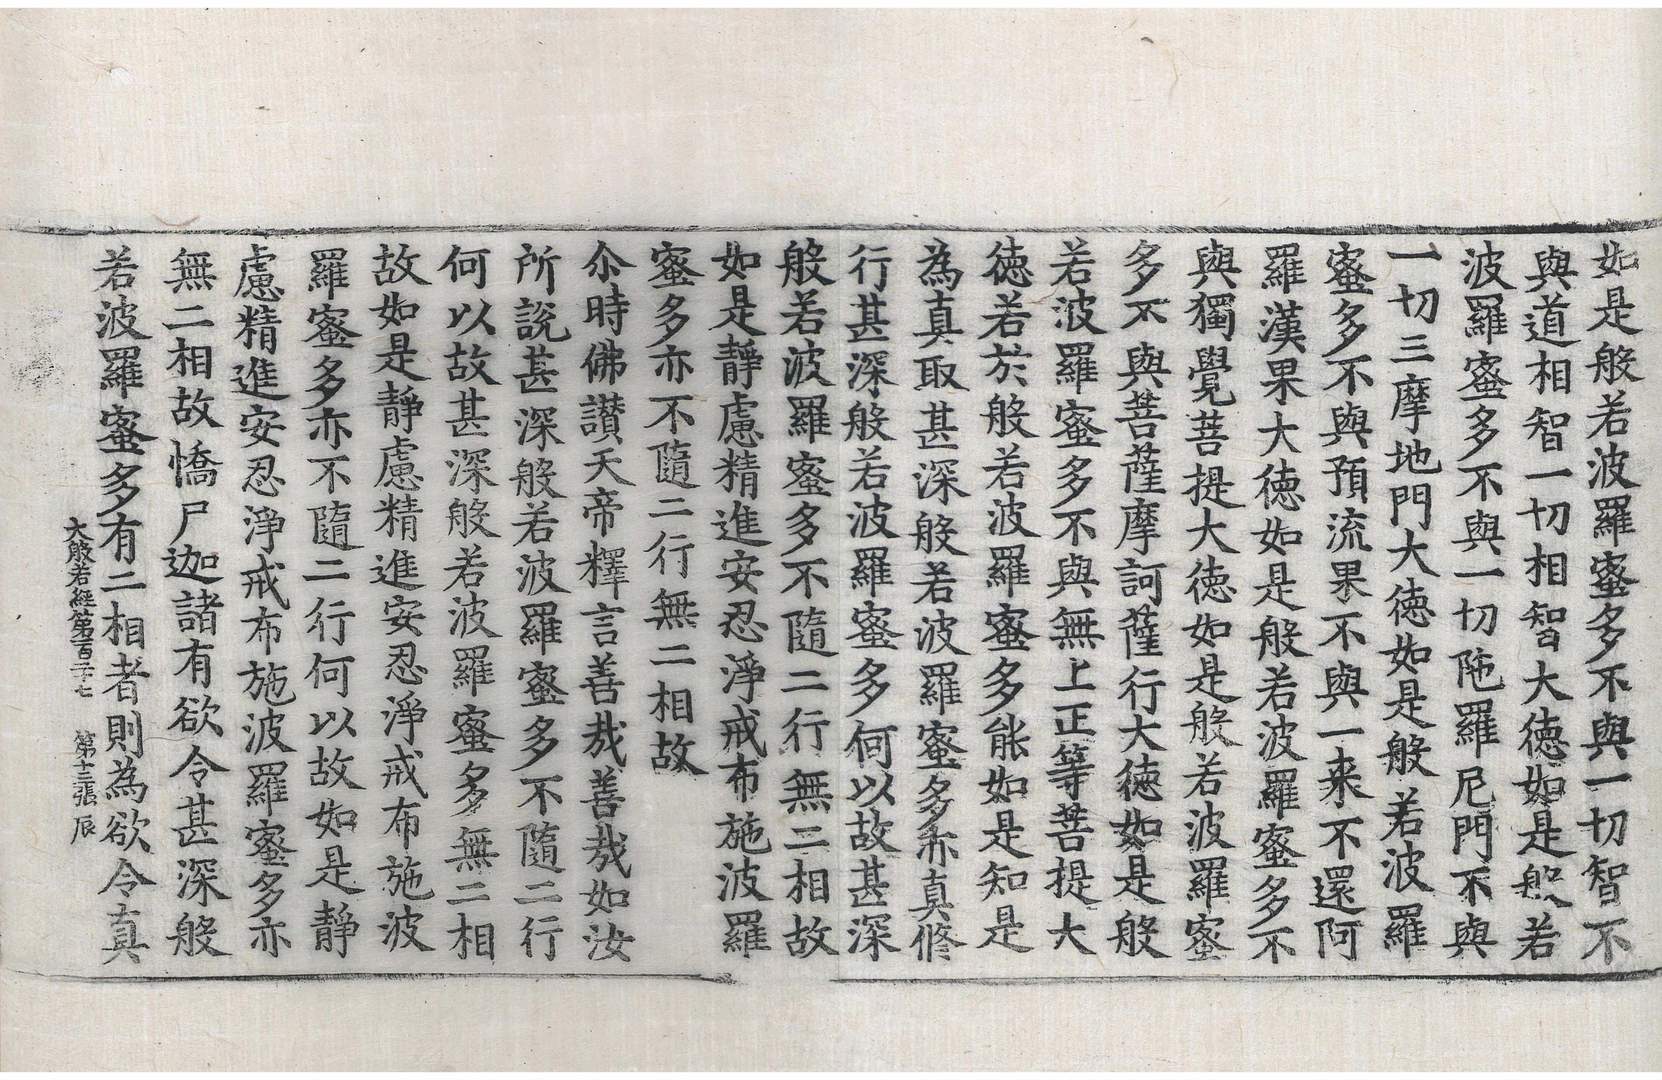 如是般若波羅蜜多不與一切智不
與道相智一切相智大德如是般若
波羅蜜多不與一切陁羅尼門不與
一切三摩地門大德如是般若波羅
蜜多不與預流果不與一来不還阿
羅漢果大德如是般若波羅蜜多不
與獨覺菩提大德如是般若波羅蜜
多不與菩薩摩訶薩行大德如是般
若波羅蜜多不與無上正等菩提大
德若於般若波羅蜜多能如是知是
為真取甚深般若波羅蜜多亦真修
行甚深般若波羅蜜多何以故甚深
般若波羅蜜多不隨二行無二相故
如是靜慮精進安忍淨戒布施波羅
蜜多亦不隨二行無二相故
尒時佛讃天帝釋言善哉善哉如汝
所說甚深般若波羅蜜多不隨二行
何以故甚深般若波羅蜜多無二相
故如是靜慮精進安忍淨戒布施波
羅蜜多亦不隨二行何以故如是靜
慮精進安忍淨戒布施波羅蜜多亦
無二相故憍尸迦諸有欲令甚深般
若波羅蜜多有二相者則為欲令真
大般若經第百二十七 第十三張 辰